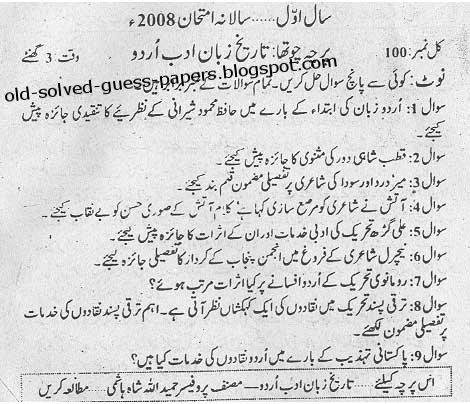 سال اوّل ...... سالانہ امتحان 2008ء
کل نمبر: 100 پرچہ چوتھا: تاریخ زبان ادب اُردو وقت: 3 گھنٹے
old-solved-guess-papers.blogspot.com
نوٹ: کوئی سے پانچ سوال حل کریں۔ تمام سوالات کے نمبر برابر ہیں۔
سوال 1: اُردو زبان کی ابتداء کے بارے میں حافظ محمود شیرانی کے نظریئے کا تنقیدی جائزہ پیش
کیجئے۔
سوال 2: قطب شاہی دور کی مثنوی کا جائزہ پیش کیجئے۔
سوال 3: میر درد اور سودا کی شاعری پر تفصیلی مضمون قلم بند کیجئے۔
سوال 4: آتش نے شاعری کو مرصع سازی کہا ہے' کلام آتش کے صوری حسن کو بے نقاب کیجئے۔
سوال 5: علی گڑھ تحریک کی ادبی خدمات اور ان کے اثرات کا جائزہ پیش کیجئے۔
سوال 6: نیچرل شاعری کے فروغ میں انجمن پنجاب کے کردار کا تفصیلی جائزہ لیجئے۔
سوال 7: رومانوی تحریک کے اُردو افسانے پر کیا اثرات مرتب ہوئے؟
سوال 8: ترقی پسند تحریک میں نقادوں کی ایک کہکشاں نظر آتی ہے۔ اہم ترقی پسند نقادوں کی خدمات
پر تفصیلی مضمون لکھئے۔
سوال 9: پاکستانی تہذیب کے بارے میں اُردو نقادوں کی خدمات کیا ہیں؟
اس پرچہ کیلئے ...... تاریخ زبان ادب اُردو — مصنف پروفیسر حمید اللہ شاہ ہاشمی ...... مطالعہ کریں